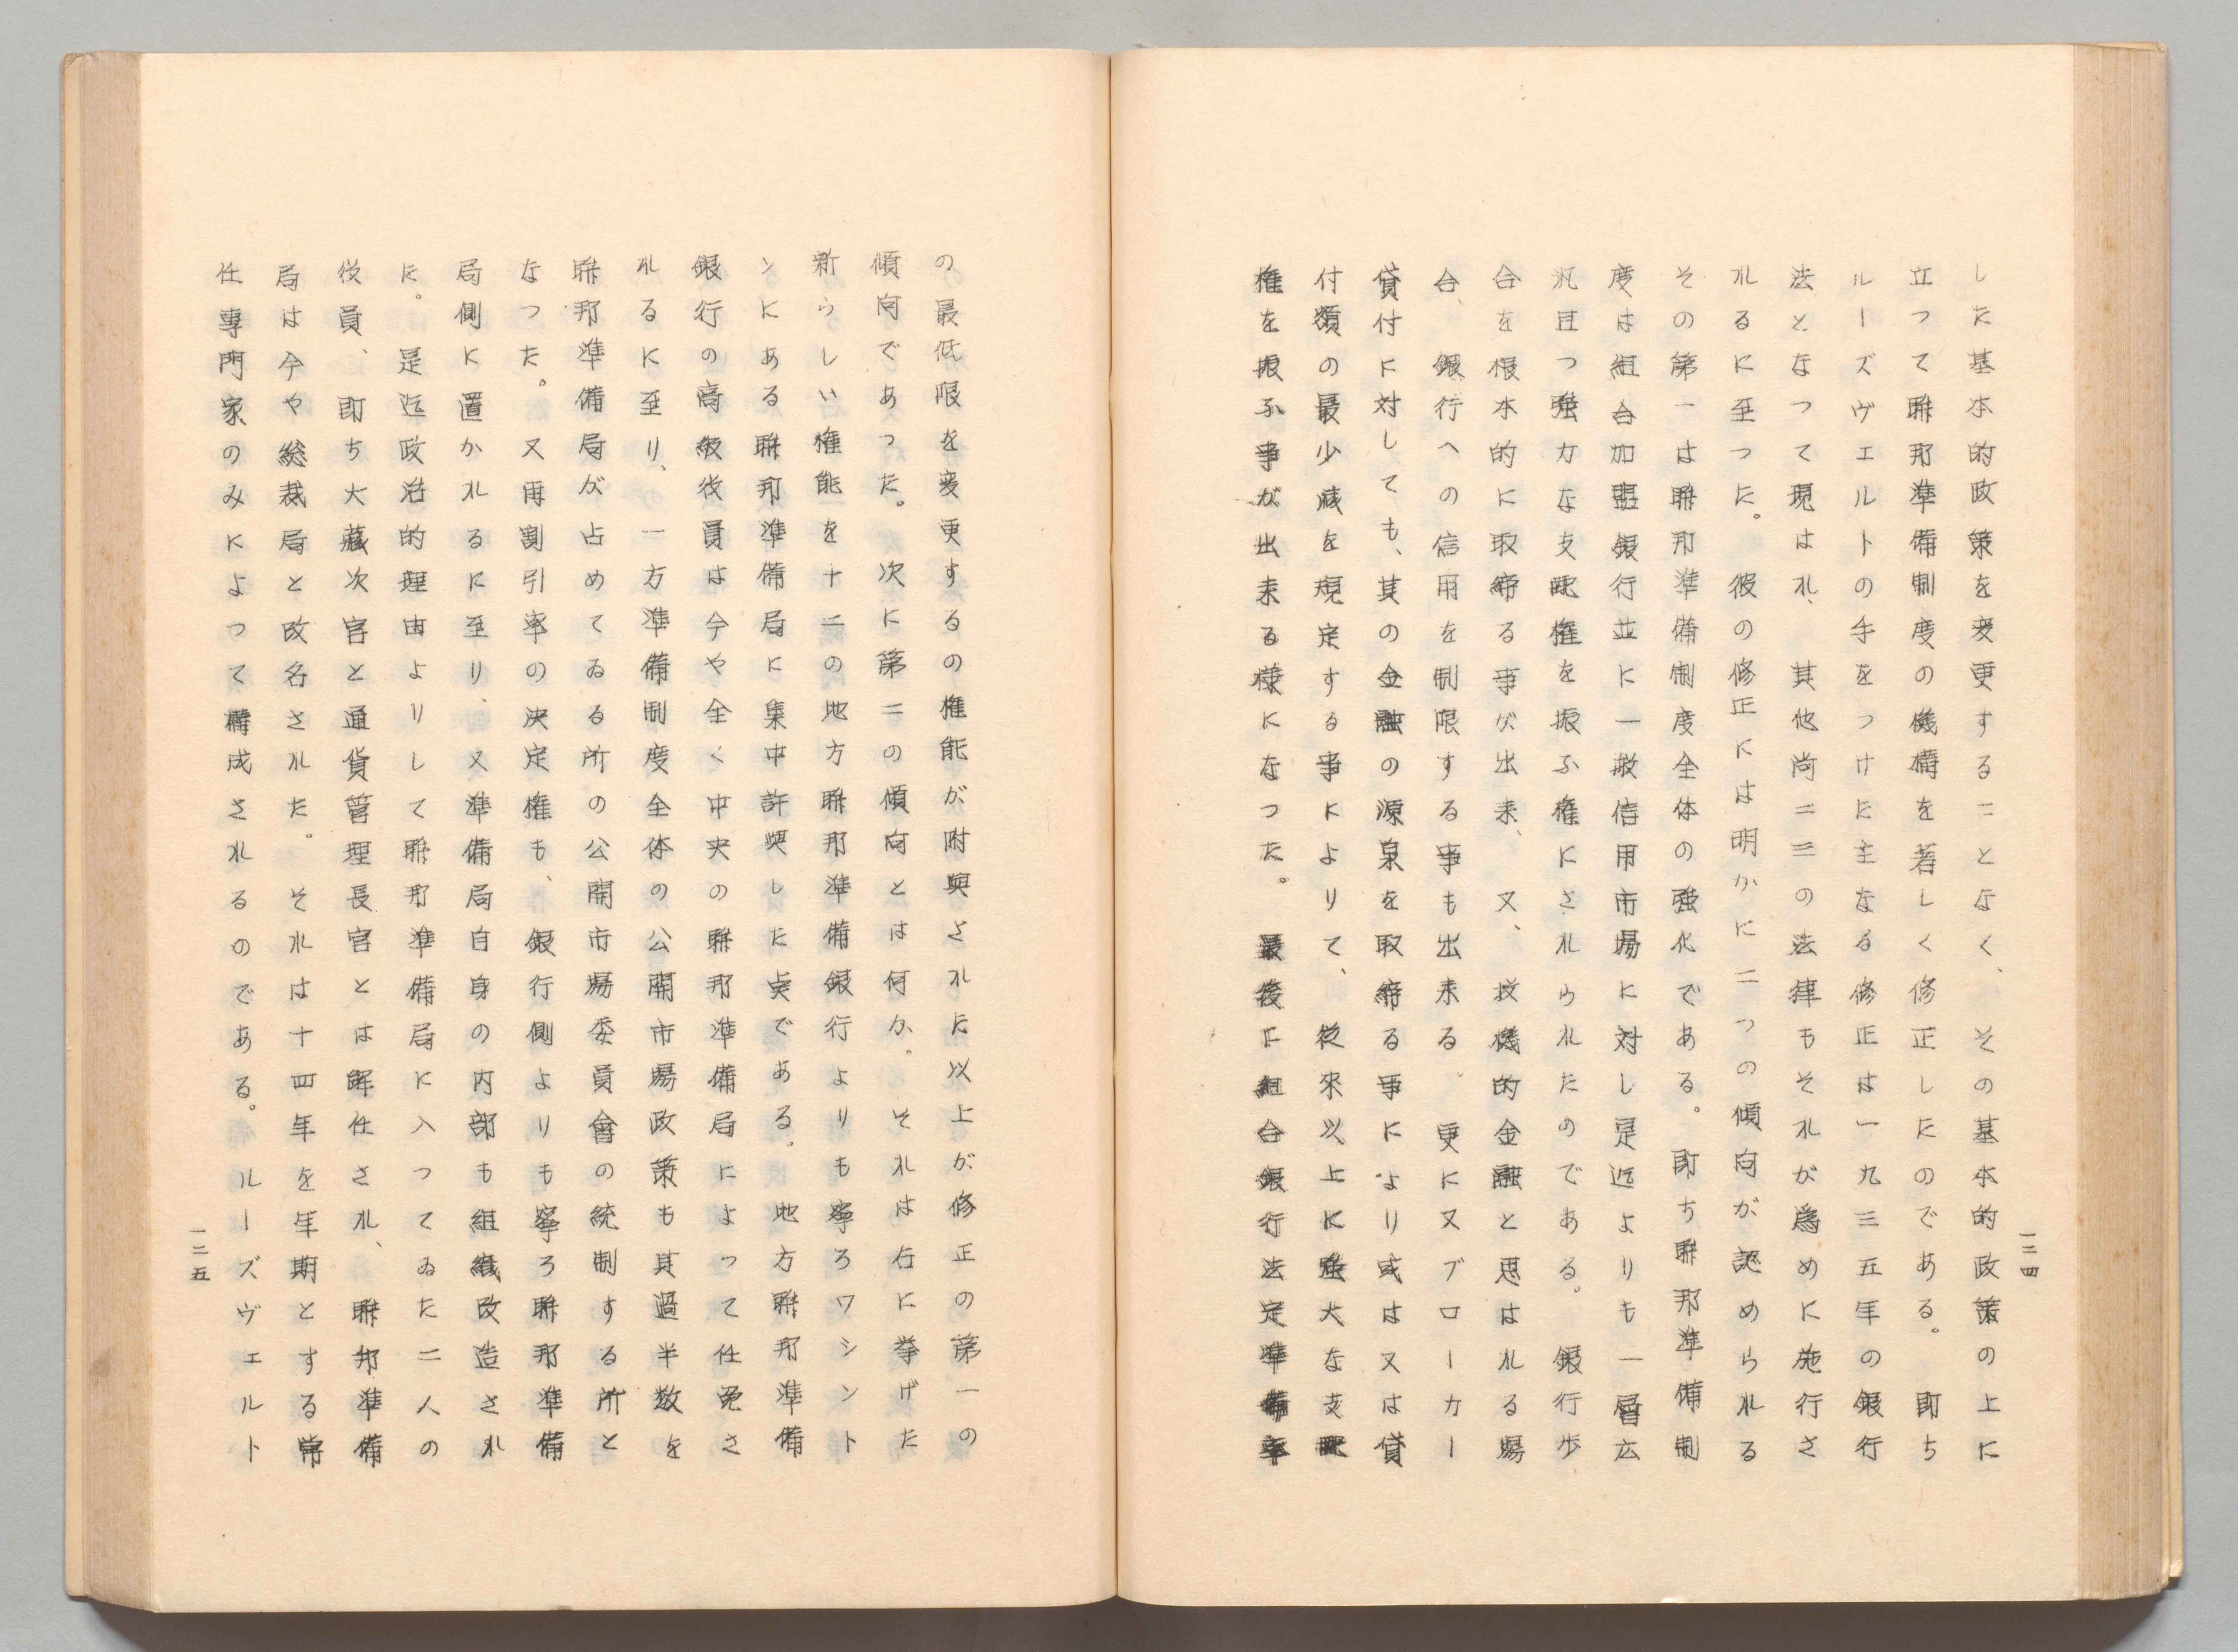 した基本的政策を変更することなく、その基本的政策の上に
立つて聯邦準備制度の機構を著しく修正したのである。即ち
ルーズヴェルトの手をつけた主なる修正は一九三五年の銀行
法となつて現はれ、其他尚二三の法律もそれが爲めに施行さ
れるに至つた。彼の修正には明かに二つの傾向が認められる
その第一は聯邦準備制度全体の強化である。即ち聯邦準備制
度は組合加盟銀行並に一般信用市場に対し是迄よりも一層広
汎且つ強力な支配権を振ふ権にされウれたのである。銀行歩
合を根本的に取締る事が出来、又、投機的金融と思はれる場
合、銀行への信用を制限する事も出来る、更に又ブローカー
貸付に対しても、其の金融の源泉を取締る事により或は又は貸
付額の最少減を規定する事によりて、従來以上に強大な支配
権を振ふ事が出来る様になつた。最後に組合銀行法定準備率
一二四
の最低限を変更するの権能が附與された以上が修正の第一の
傾向であつた。次に第二の傾向とは何か。それは右に挙げた
新らしい権能を十二の地方聯邦準備銀行よりも寧ろワシント
ンにある聯邦準備局に集中許與した点である。地方聯邦準備
銀行の高級役員は今や全く中央の聯邦準備局によつて任免さ
れるに至り、一方準備制度全体の公開市場政策も其過半数を
聯邦準備局が占めてゐる所の公開市場委員會の統制する所と
なつた。又再割引率の決定権も、銀行側よりも寧ろ聯邦準備
局側に置かれるに至り、又準備局自身の内部も組織改造され
た。是迄政治的理由よりして聯邦準備局に入つてゐた二人の
役員、即ち大藏次官と通貨管理長官とは解任され、聯邦準備
局は今や総裁局と改名された。それは十四年を年期とする常
任專門家のみによつて構成されるのである。ルーズヴェルト
一二五